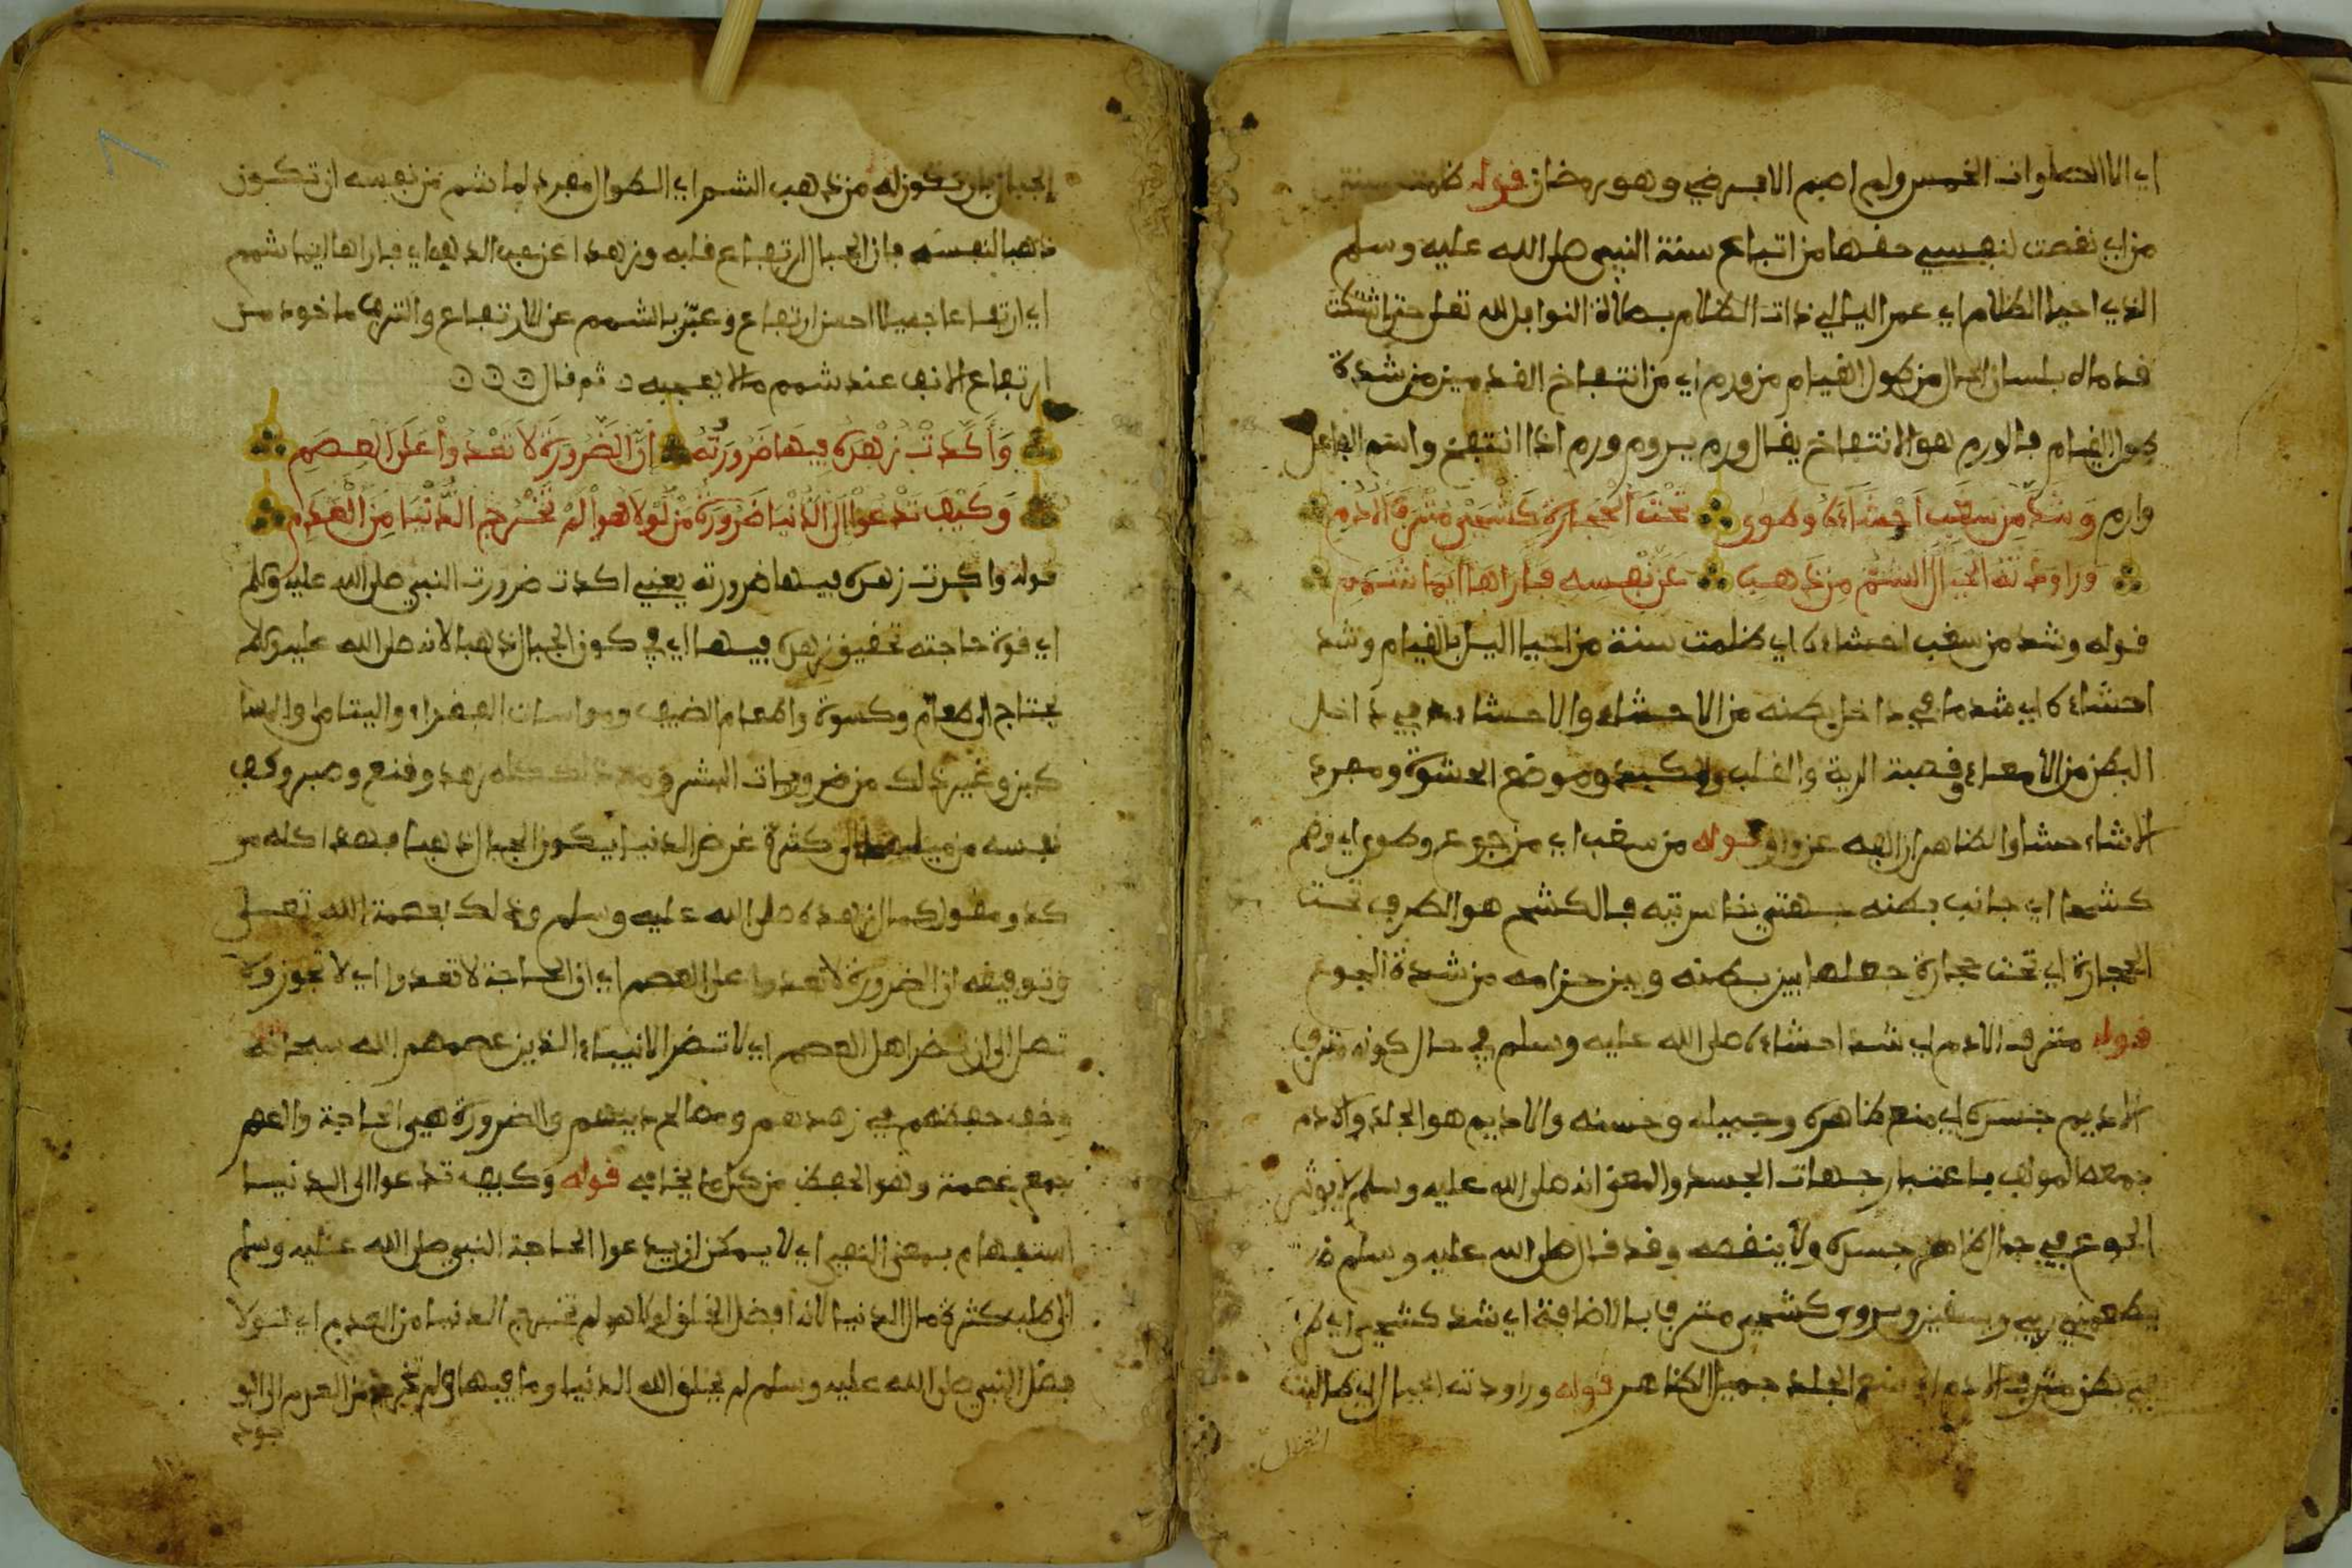 اي الا الصلوات الخمس ولم اصم الا فرضي وهو رمضان قوله ظلمت سنة
من اي نقصت لنفسي حقها من اتباع سنة النبي صلى الله عليه وسلم
الذي احيا الظلام اي عمر اليالي ذات الظلام بصلاة النوافل لله تعلى حتى اشتكت
قدماه بلسان الحال من طول القيام من ورم اي من انتفاخ القدمين من شدة
طول القيام فالورم هو الانتفاخ يقال ورم يروم ورم اذا انتفخ واسم الفاعل
وارم وَشَدَّ مِن سَغَبٍ اَحْشَاءَهُ وَطَوَى تَحْتَ الْحِجَارَةِ كَشْحَيْ مُتْرَفَ الاَدَمِ
وراودته الجبال الشم من ذهب عن نفسه فاراها ايما شمم
قوله وشد من سغب احشاءه اي ظلمت سنة من احيا اليل بالقيام وشد
احشاءه اي شد ما في داخل بطنه من الاحشاء والاحشاء في داخل
البطن من الامعاء وقصبة الرية والقلب والكبد وموضع الحشوة ومفرد
الاشاء حشا والظاهر ان الفه عن واو قوله من سغب اي من جوع وطوى اي ولم
كشحا اي جانب بطنه جهتي خاسرتيه فالكشح هو الطرف تحت
الحجارة اي تحت حجارة جعلها بين بطنه وبين حزامه من شدة الجوع
قوله مترف الادم اي شد احشاءه صلى الله عليه وسلم في حال كونه مترف
الاديم جسده اي منعم ظاهره وجميله وحسنه والاديم هو الجلد والادم
جمعه المولف باعتبار جهات الجسد والمعنى انه صلى الله عليه وسلم لا يوثر
الجوع في جمال ظاهر جسده ولا ينقصه وقد قال صلى الله عليه وسلم
يطعمني ربي ويسقين ويروى كشحي مترف بالاضافة اي شد كشحي اي
بطن مترف الادم اي منعم الجلد جميل الظاهر قوله وراودته الجبال اي طالبته
الجبال
الجبال بان تكون له من ذهب الشم اي الطوال مفرد لما شم من نفسه ان تكون
ذهبا لنفسه فان الجبال ارتفاع قلبه وزهدا عن حب الذهب اي فاراها ايما شمم
اي ارتفاعا جميلا احسن ارتفاع وعبّر بالشمم عن الارتفاع والترفع ماخوذ من
ارتفاع الانف عند شمم مالا يعجبه ثم قال
وَأَكَّدَتْ زُهْدَهُ فِيهَا ضَرُورَتُهُ اِنَّ الضَّرُورَةَ لاَ تَعْدُواْ عَلَى الْعِصَمِ
وَكَيْفَ تَدْعُواْ اِلَى الدُّنْيَا ضَرُورَةُ مَنْ لَوْلاَ هُوَ لَمْ تُخْرَجِ الدُّنْيَا مِنَ الْعَدَمِ
قوله واكدت زهده فيها ضرورته يعني اكدت ضرورت النبي صلى الله عليه وسلم
اي قوة حاجته تحقيق زهده فيها اي في كون الجبال ذهبا لانه صلى الله عليه وسلم
يحتاج الى طعام وكسوة واطعام الضيف ومواسات الفقراء واليتامى والمسا
كين وغير ذلك من ضروريات البشر ومع ذلك كله زهد وقنع وصبر وكف
نفسه من ميلها الى كثرة غرض الدنيا بكون الجبال ذهبا فهذا كله مو
كد ومقو لكمال زهده صلى الله عليه وسلم وذلك بعصمة الله تعلى
وتوفيقه ان الضرورة لا تعدوا على العصم اي ان الحاجة لا تعدوا اي لا تجوز ولا
تصل الى ان تضر اهل العصم اي لا تضر الانبياء الذين عصمهم الله سبحانه
حفظهم في زهدهم ومصالح دينهم والضرورة هي الحاجة والعصم
جمع عصمة وهو الحفظ من كل ما يخاف قوله وكيف تدعوا الى الدنيا
استفهام بمعنى النفي اي لا يمكن ان يدعوا الحاجة النبي صلى الله عليه وسلم
الى طلب كثرة مال الدنيا لانه افضل الخلق لولا هو لم تخرج الدنيا من العدم اي لولا
فضل النبي صلى الله عليه وسلم لم يخلق الله الدنيا وما فيها ولم تخرج من العدم الى الو
جود